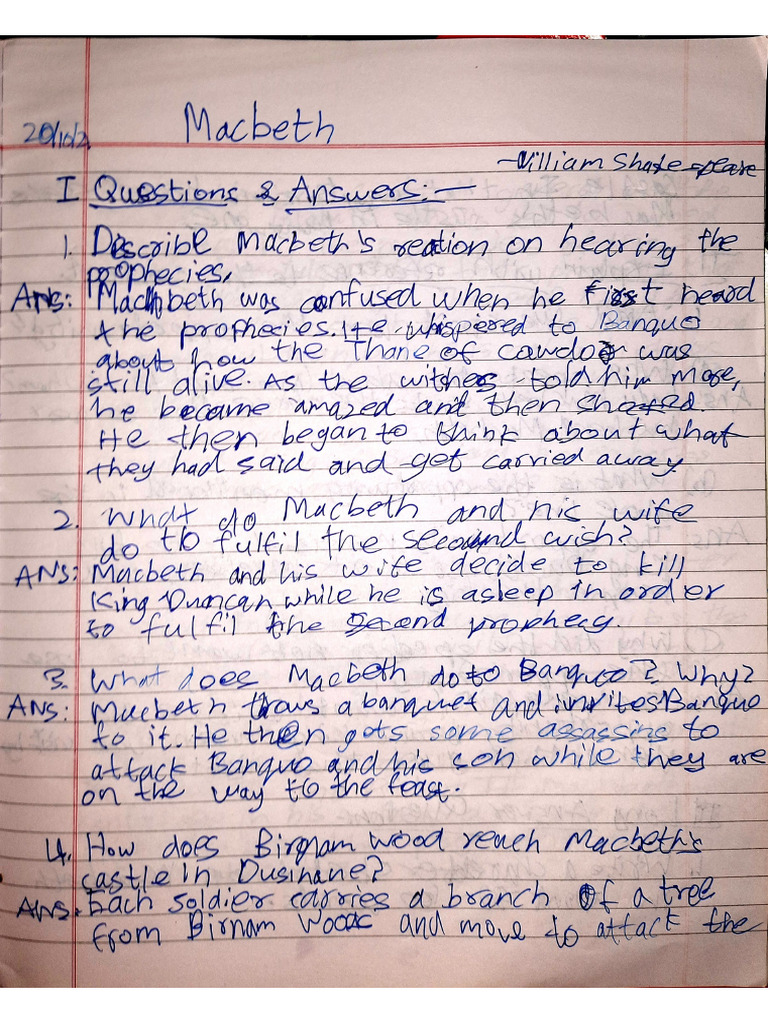 20/10/2
Macbeth
-William Shakespeare
I Questions & Answers:-
1. Discribe Macbeth's reation on hearing the
prophecies,
Ans: Macbeth was confused when he first heard
the prophecies. He whispered to Banquo
about how the Thane of cawdor was
still alive. As the withes told him more,
he became amazed and then
He then began to think about what
they had said and get carried away.
2. What do Macbeth and his wife
do to fulfil the second wish?
ANS: Macbeth and his wife decide to kill
King Duncan while he is asleep in order
to fulfil the second prophecy.
3. What does Macbeth do to Banquo? Why?
ANS: Macbeth trows a banquet and invites Banquo
to it. He then gets some assassins to
attack Banquo and his son while they are
on the way to the feast.
4. How does Birnam wood reach Macbeth's
castle in Dusinane?
ANS: Each soldier carries a branch of a tree
from Birnam wood and move to attack the